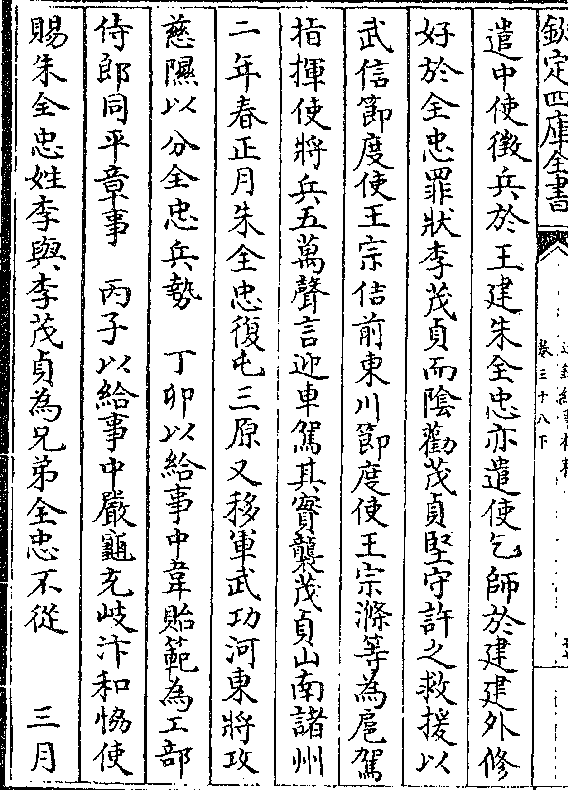 欽定四庫全書
卷三十八下
遣中使徵兵於王建朱全忠亦遣使乞師於建建外修
好於全忠罪狀李茂貞而陰勸茂貞堅守許之救援以
武信節度使王宗佶前東川節度使王宗滌等為扈駕
指揮使將兵五萬聲言迎車駕其實襲茂貞山南諸州
二年春正月朱全忠復屯三原又移軍武功河東將攻
慈隰以分全忠兵勢　丁卯以給事中韋貽範為工部
侍郎同平章事　丙子以給事中嚴龜充岐汴和恊使
賜朱全忠姓李與李茂貞為兄弟全忠不從　三月